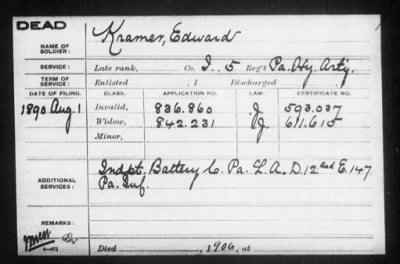 DEAD
Kramer, Edward
NAME OF SOLDIER:
SERVICE: Late rank, Co. I, 5 Reg't Pa. Hy. Art'y.
TERM OF SERVICE: Enlisted , 1 Discharged
DATE OF FILING. CLASS. APPLICATION NO. LAW. CERTIFICATE NO.
1890 Aug. 1 Invalid, 836.860 J 593.037
Widow, 842.231 J 611.615
Minor,
ADDITIONAL SERVICES: Indpt. Battery C. Pa. L. A. D. 12 and E. 147
Pa. Inf.
REMARKS:
Died , 1906, at